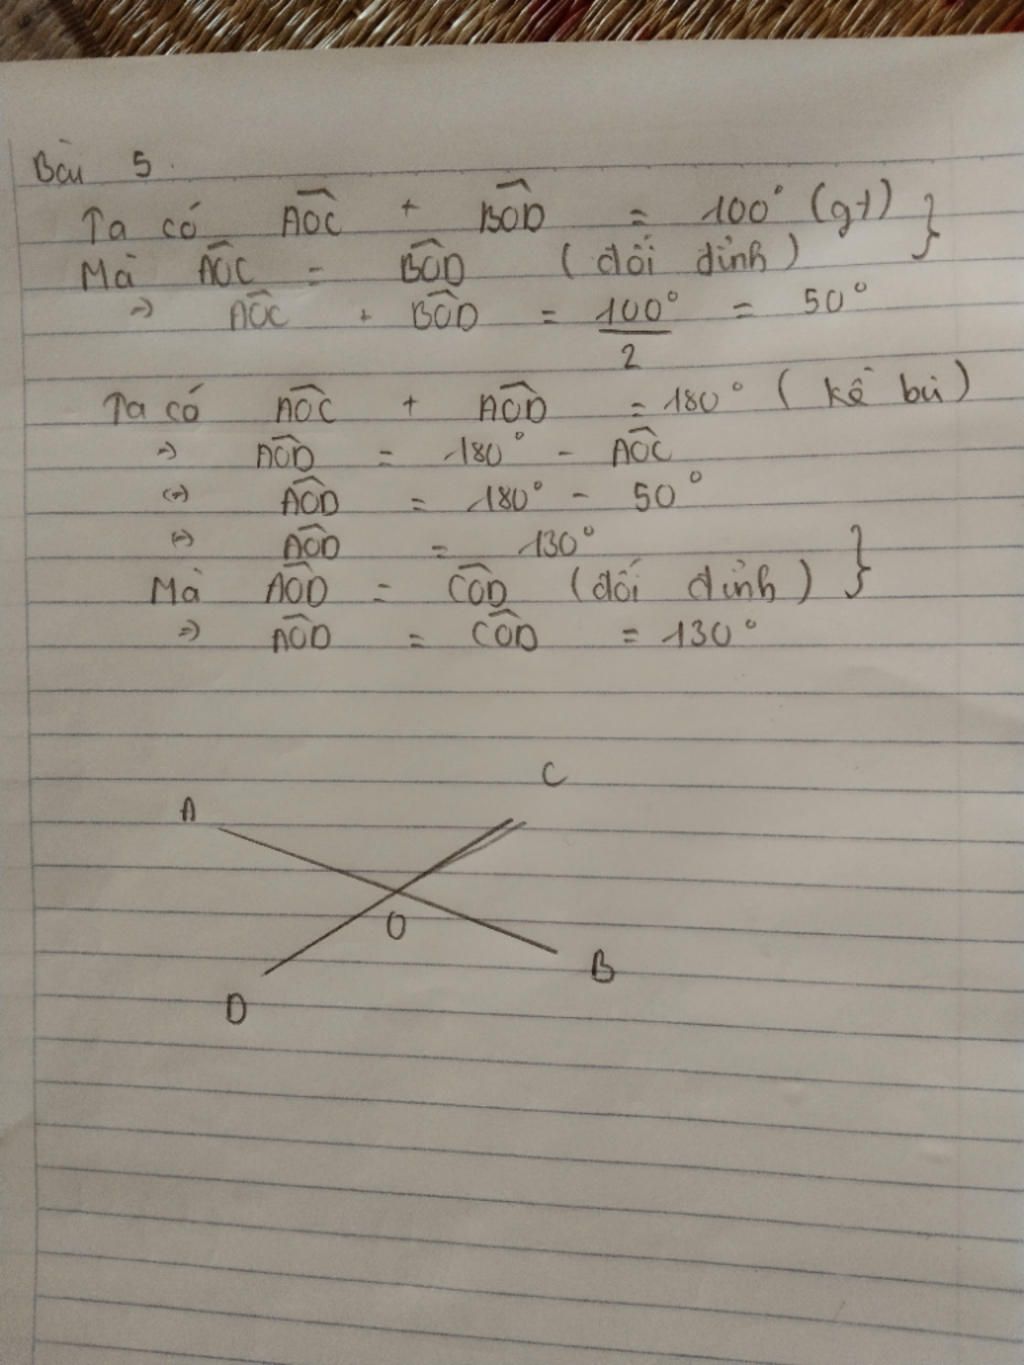 Bài 5.
Ta có AÔC + BÔD = 100° (gt) }
Mà AÔC = BÔD (đối đỉnh)
=> AÔC + BÔD = 100°/2 = 50°
Ta có AÔC + AÔD = 180° (kề bù)
=> AÔD = 180° - AÔC
<=> AÔD = 180° - 50°
<=> AÔD = 130° }
Mà AÔD = CÔD (đối đỉnh)
=> AÔD = CÔD = 130°
C
A
O
B
D